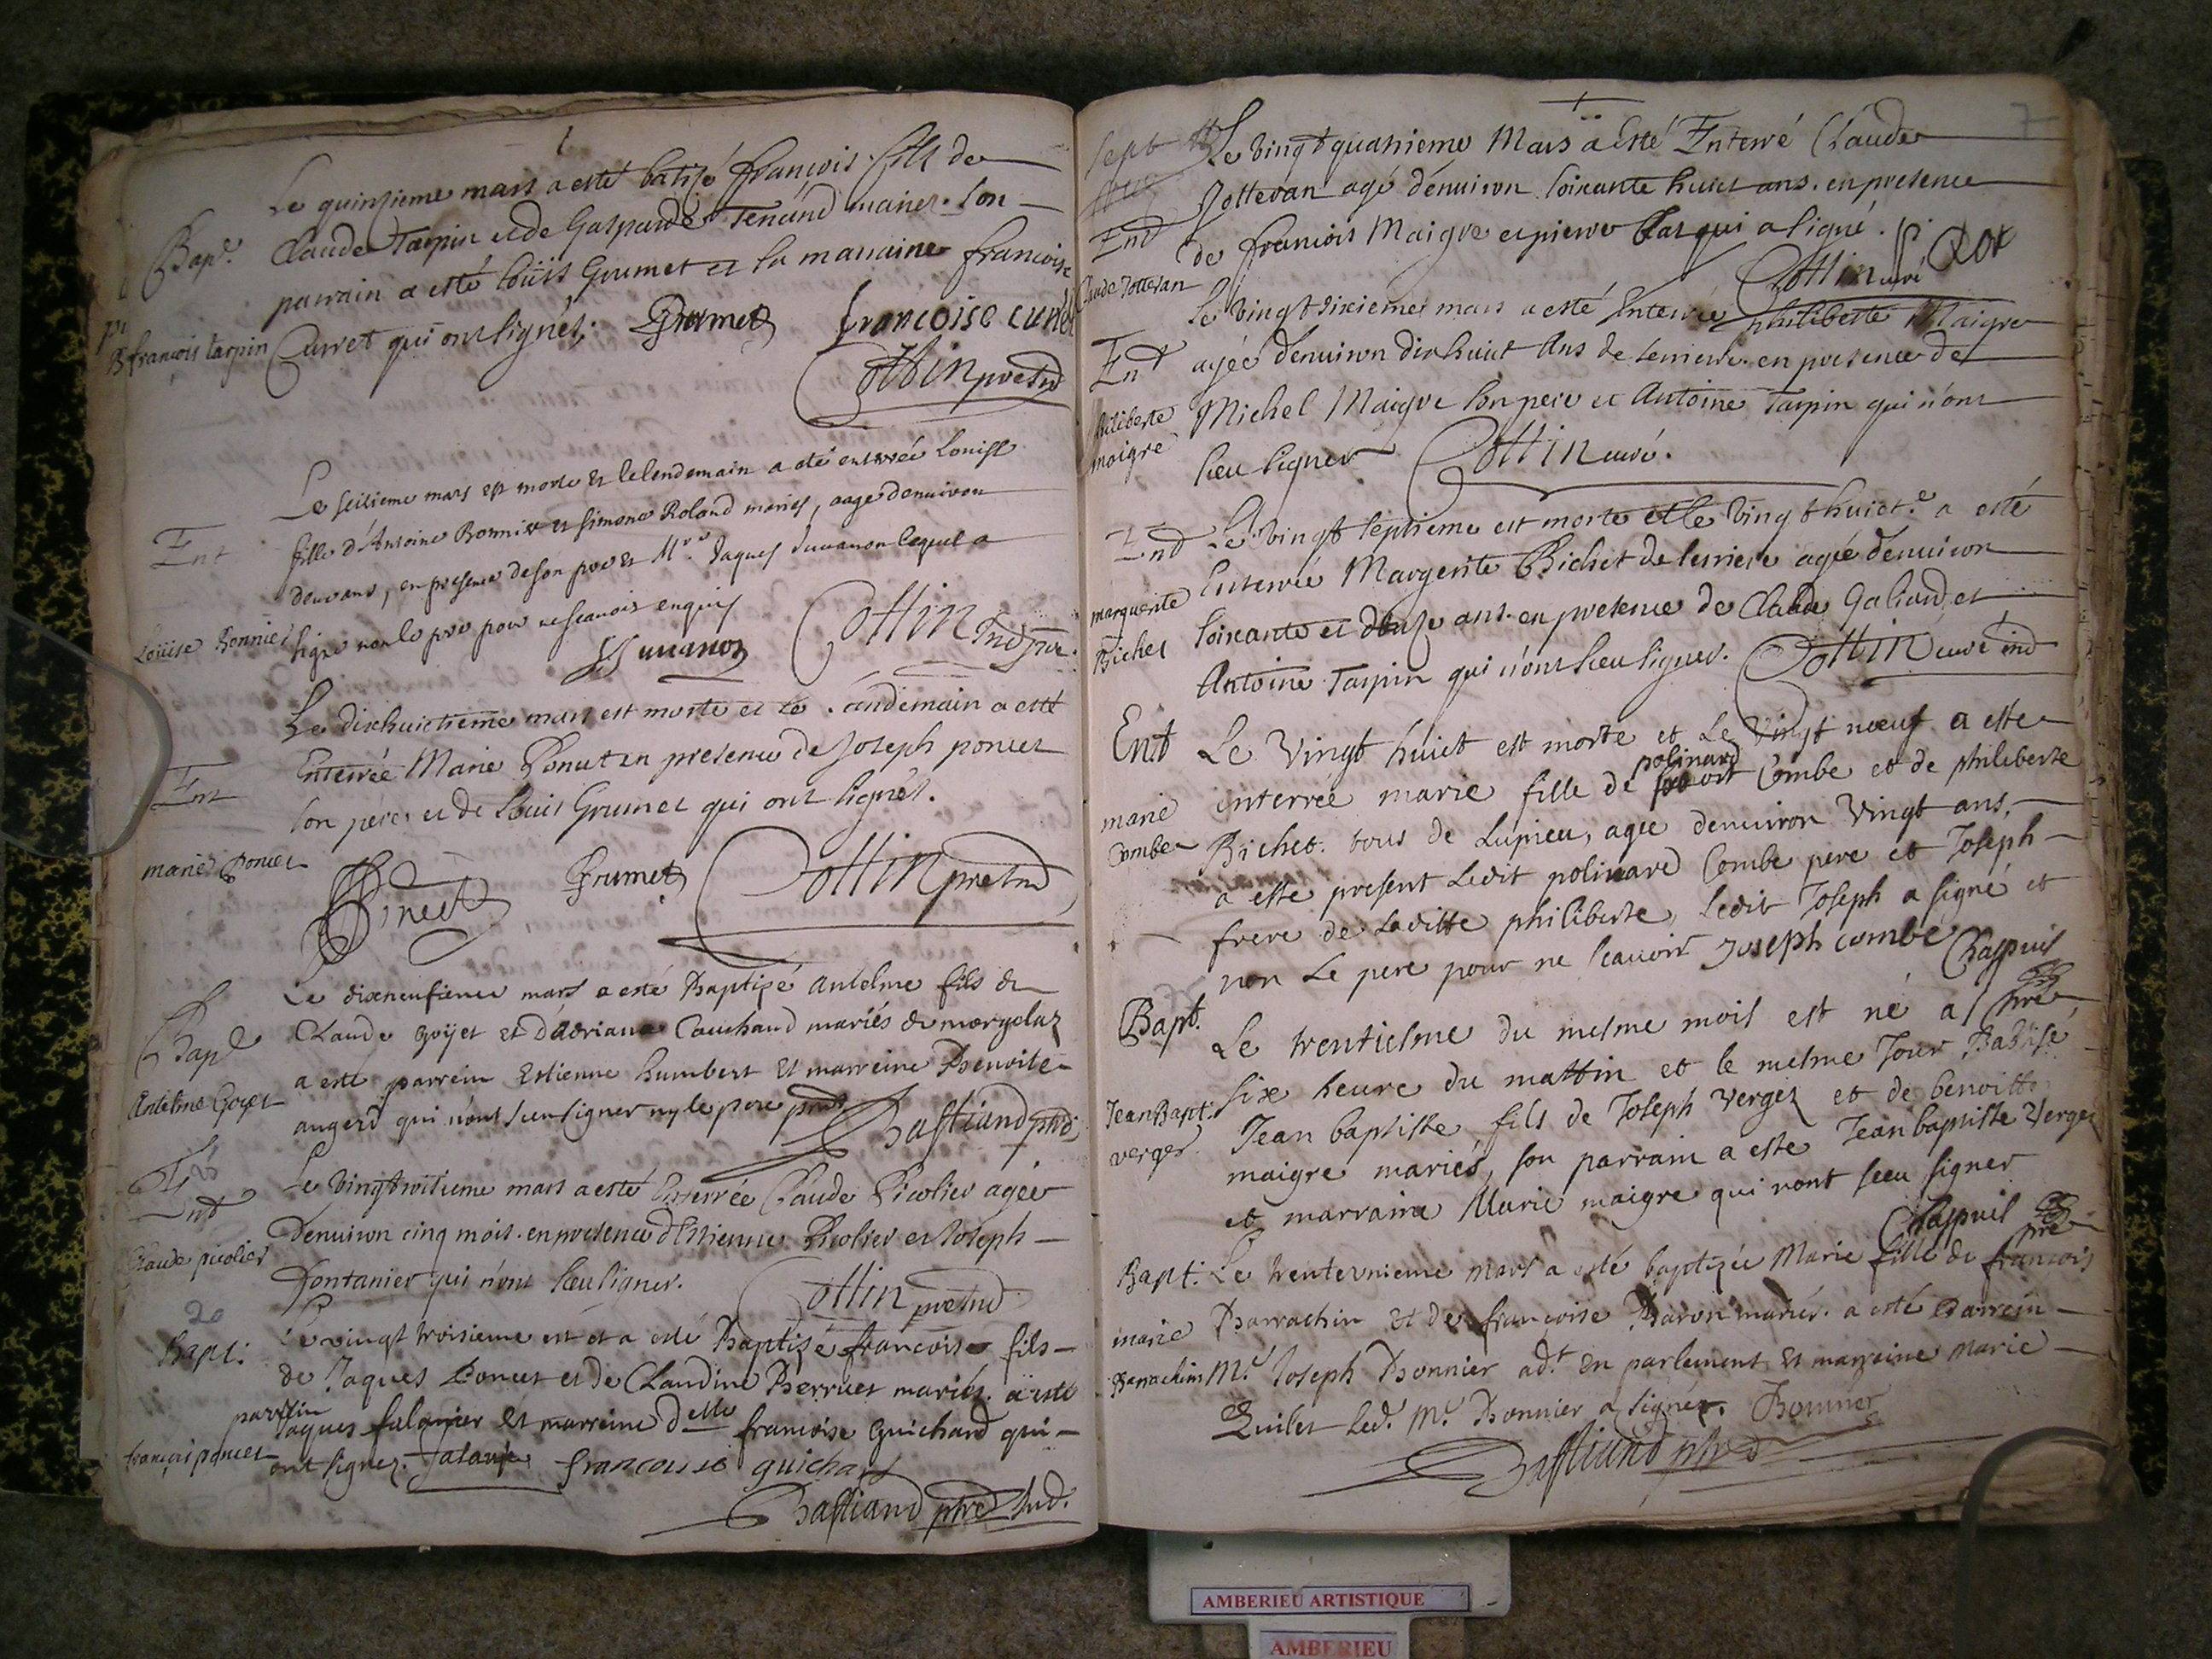 Le quinzieme mars a esté batizé françois fils de
Bap.
Claude Tarpin et de Gasparde Tenand mariez. Son
parrain a esté Loüis Grumet et la marraine francoise
B françois tarpin
Curret qui ont signés. Grumet francoise curret
Cottin
Le seisieme mars est morte et le lendemain a eté enterrée Louise
Ent
fille d'Antoine Bonnier et Simone Roland mariés, aagee denuiron
deux ans, en presence de son pere et Mre Jaques Juvanon lequel a
Loüise Bonnier
signé non le pere pour ne scauoir enquis
Juuanon Cottin
Le dixhuictieme mars est morte et le landemain a esté
Ent
Enterrée Marie Poncet en presence de Joseph poncet
son pere et de Louis Grumet qui ont signés.
marie Poncet
Grumet Cottin
Le dixneufieme mars a esté Baptizé Antelme fils de
Bap
Claude goÿet et d'adriane Cauchand mariés de morgelaz
a esté parrein Estienne humbert et marreine Benoite
Antelme Goyet
angerd qui n'ont sceu signer ny le pere
Bastiand
Le Vingtroitieme mars a esté Enterrée Claude Picolier agée
End
Denuiron cinq mois. en presence d'Estienne Picolier et Joseph
Claude picolier
Fontanier qui n'ont sceu signer.
Cottin
20
Bapt:
Le vingt troisieme est et a esté Baptizé francois fils
de Jaques Poncet et de Claudine Perruet mariés. a esté
parrein
Jaques falavier et marreine delle francoise guichard qui
françois poncet
ont signez. francoise guichard
Bastiand
7
Sept
Le vingt quatrieme Mars a Esté Enterré Claude
Jottevan agé d'enuiron soixante huict ans. en presence
End
de francois Maigre et pierre qui a signé.
Claude Jottevan
Cottin curé
Le vingt sixieme mars a esté Enterrée philiberte Maigre
Ent
agée d'enuiron dixhuict Ans de en presence de
philiberte
Michel Maigre son pere et Antoine Tarpin qui n'ont
maigre
sceu signer Cottin curé.
End
Le Vingt septieme est morte et le Vingt huict.e a esté
Enterrée Margerite Bichet de agée d'enuiron
marguerite
soixante et douze ans. en presence de Claude Galiand et
Bichet
Antoine Tarpin qui n'ont sceu signer. Cottin curé
Ent
Le Vingt huict est morte et Le Vingt nœuf a esté
polinard
interrée marie fille de Combe et de philiberte
marie
Combe
Bichet. tous de Lupieu, agee denuiron Vingt ans,
a este present Ledit polinard Combe pere et Joseph
frere de Laditte philiberte, Ledit Joseph a signé et
non Le pere pour ne scauoir Joseph combe Chappuis
Bapt.
Le trentiesme du mesme mois est né a
pre
six heure du mattin et le mesme Jour Batisé
Jean Bapt.
Jean baptiste fils de Joseph Verger et de benoitte
verger.
maigre mariés, son parrain a este Jean baptiste Verger
et marraine Marie maigre qui nont sceu signer
Chappuis
pre
Bapt:
Le trenteunieme mars a esté baptizée Marie fille de francois
marie
Barrachin et de francoise Baron mariés. a esté Parrein
Barrachin
Mr. Joseph Bonnier adt. en parlement et marreine marie
Quilet Led. Mr. Bonnier a signéz. Bonnier
Bastiand
AMBERIEU ARTISTIQUE
AMBERIEU